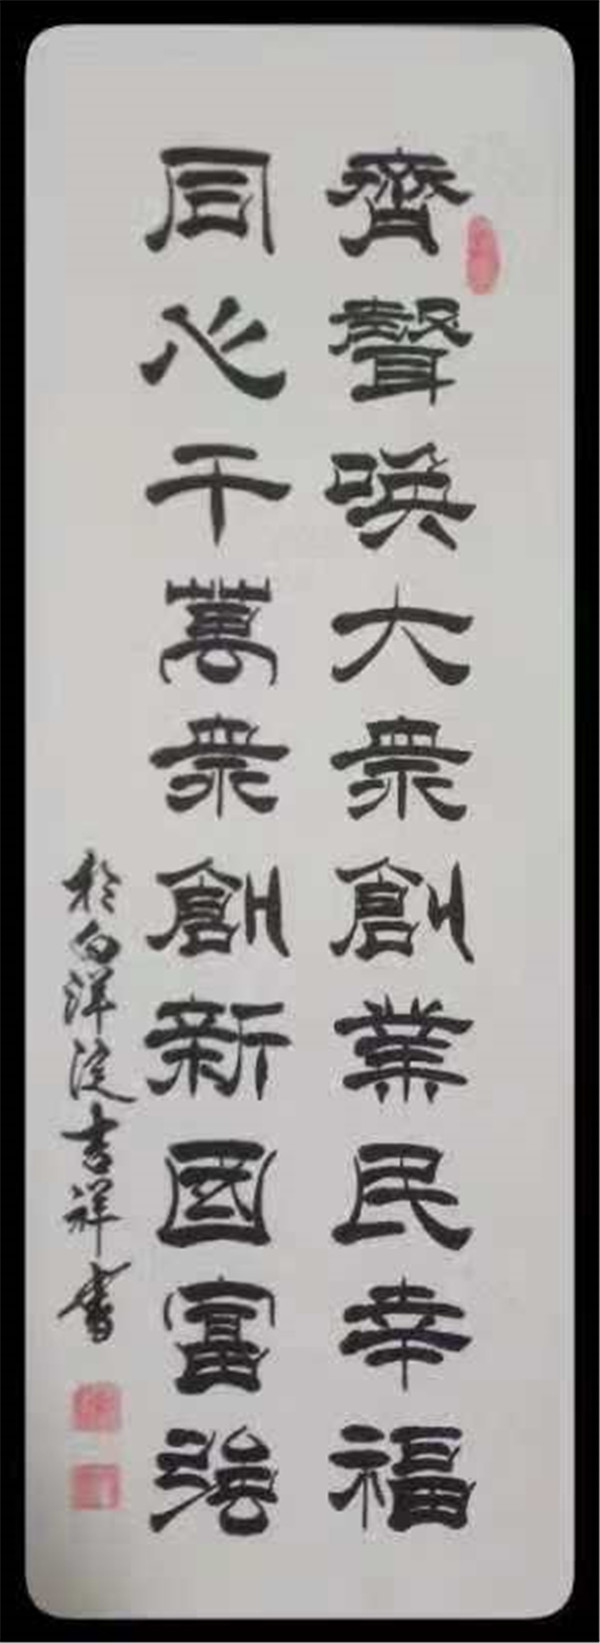 齊聲唤大衆創業民幸福
同心干萬衆創新國富強
於白洋淀吉祥書